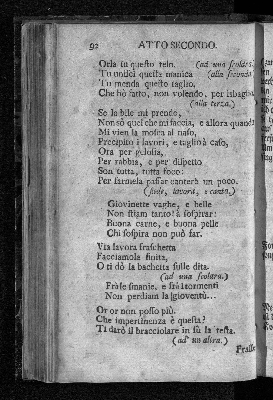 92 ATTO SECONDO.
Orla tu questo telo. (ad una scolara.
Tu undici questa manica (alla seconda
Tu menda questo taglio.
Che hò fatto, non volendo, per isbaglio.
(alla terza.)
Se la bile mi prendo,
Non sò quel che mi faccia, e allora quando
Mi vien la mosca al naso,
Precipito i lavori, e taglio à caso,
Ora per gelosia,
Per rabbia, e per dispetto
Son tutta, tutta foco:
Per farmela passar canterò un poco.
(siede, lavora, e canta.)
Giovinette vaghe, e belle
Non stiam tanto à sospirar:
Buona carne, e buona pelle
Chi sospira non può far.
Via lavora fraschetta
Facciamola finita,
O ti dò la bachetta sulle dita.
(ad una scolara.)
Frà le smanie, e frà i tormenti
Non perdiam la gioventù...
Or or non posso più.
Che impertinenza è questa?
Ti darò il bracciolare in sù la testa.
(ad un altra.)